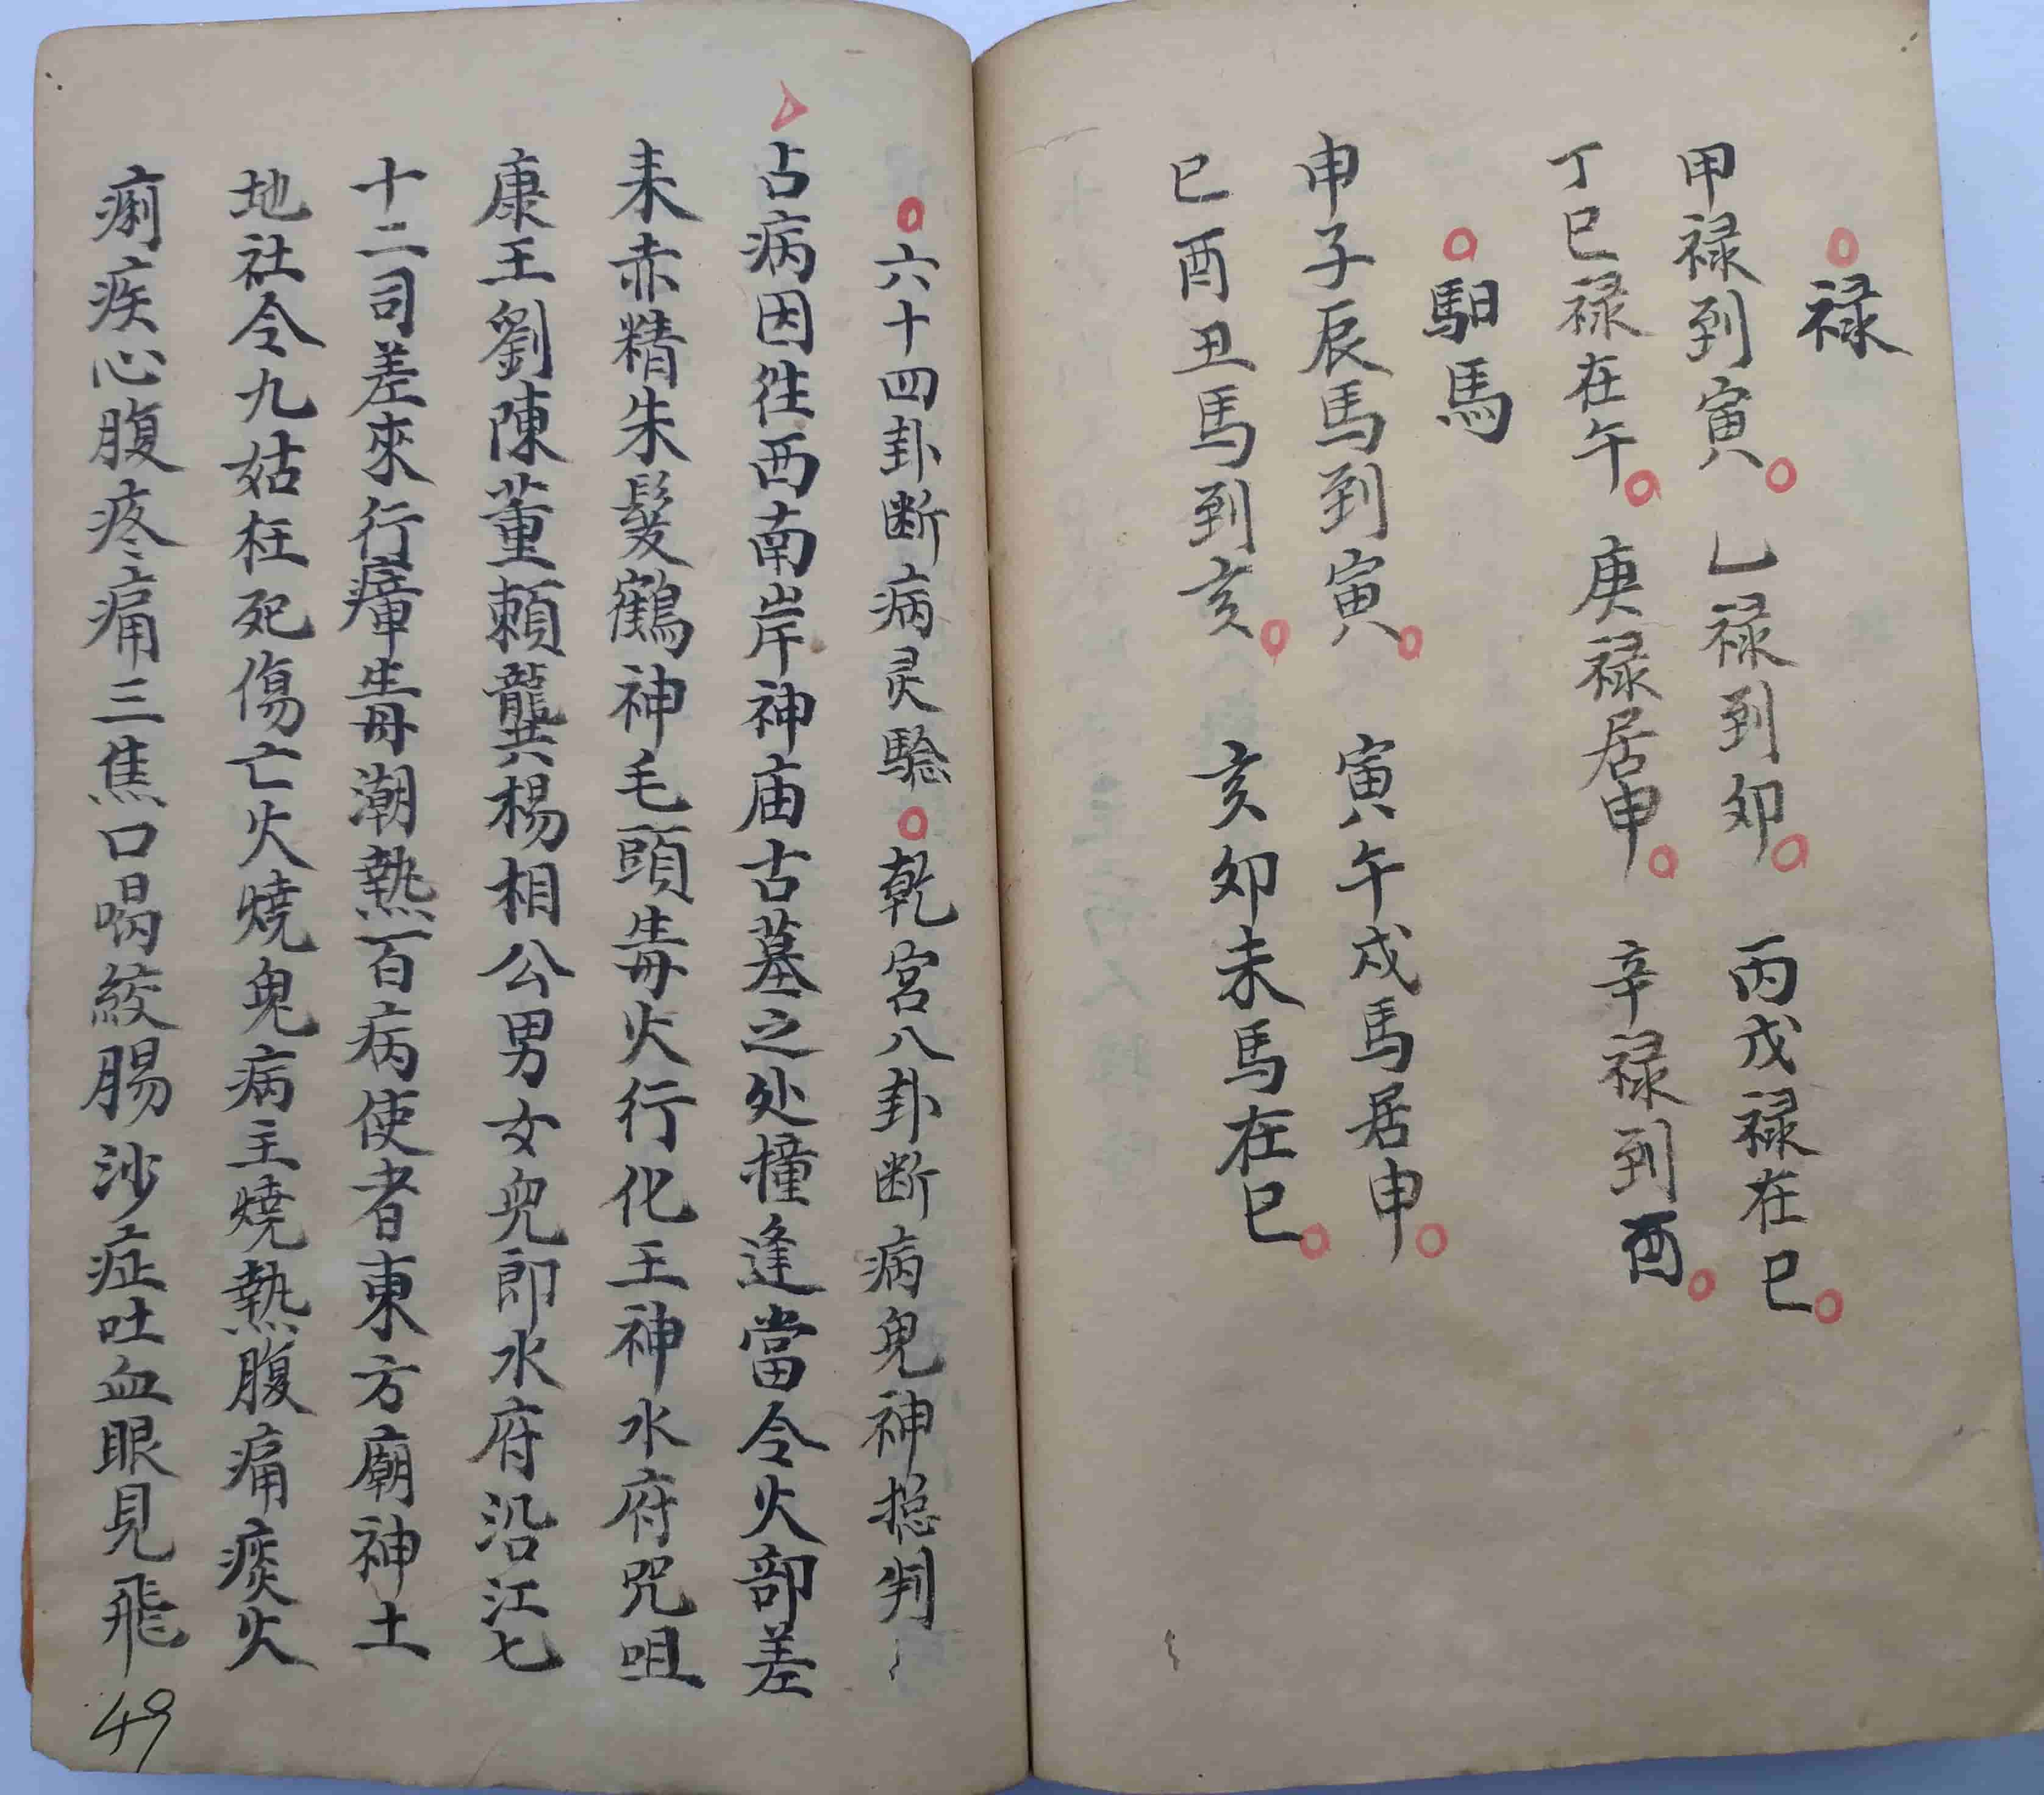 禄
甲禄到寅 乙禄到卯 丙戊禄在巳
丁巳禄在午 庚禄居申 辛禄到酉
馹馬
申子辰馬到寅 寅午戌馬居申
巳酉丑馬到亥 亥卯未馬在巳
六十四卦断病灵驗 乾宮八卦断病鬼神捴判
占病因徃西南岸神庙古墓之处撞逢當令火部差
耒赤精朱髮鶴神毛頭毒火行化王神水府咒咀
康王劉陳董賴龔楊相公男女兜郎水府沿江七
十二司差來行瘴毒潮熱百病使者東方廟神土
地社令九姑枉死傷亡火燒鬼病主燒熱腹痛痰火
痢疾心腹疼痛三焦口喝絞腸沙症吐血眼見飛
49